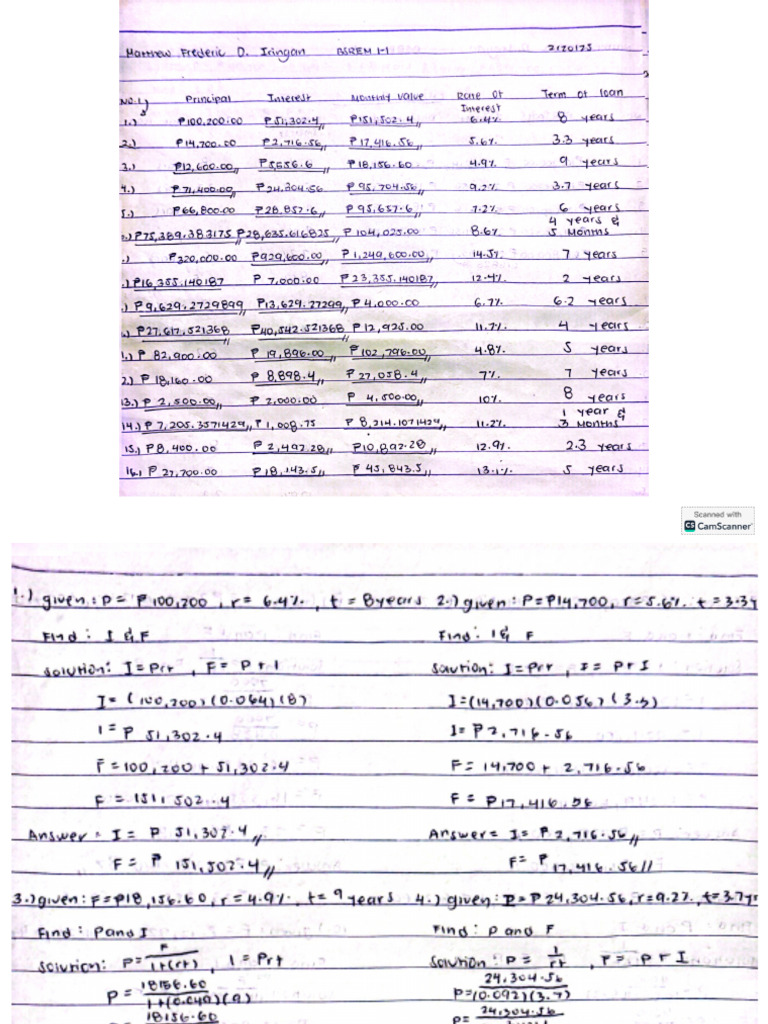 Matthew Frederic D. Iringan BSREM 1-1 2/20/25
No. 1.) Principal Interest Monthly Value Rate Of Interest Term Of loan
1.) ₱100,200.00 ₱51,302.4 ₱151,502.4 6.4% 8 years
2.) ₱14,700.00 ₱2,716.56 ₱17,416.56 5.6% 3.3 years
3.) ₱12,600.00 ₱5,556.6 ₱18,156.60 4.9% 9 years
4.) ₱71,400.00 ₱24,304.56 ₱95,704.56 9.2% 3.7 years
5.) ₱66,800.00 ₱28,857.6 ₱95,657.6 7.2% 6 years
.) ₱75,389.383175 ₱28,635.616825 ₱104,025.00 8.6% 4 years & 5 Months
.) ₱320,000.00 ₱929,600.00 ₱1,249,600.00 14.5% 7 years
.) ₱16,355.140187 ₱7,000.00 ₱23,355.140187 12.4% 2 years
.) ₱9,629.2729899 ₱13,629.27299 ₱4,000.00 6.7% 6.2 years
.) ₱27,617.521368 ₱40,542.521368 ₱12,925.00 11.7% 4 years
1.) ₱82,900.00 ₱19,896.00 ₱102,796.00 4.8% 5 years
2.) ₱18,160.00 ₱8,898.4 ₱27,058.4 7% 7 years
13.) ₱2,500.00 ₱2,000.00 ₱4,500.00 10% 8 years
14.) ₱7,205.3571429 ₱1,008.75 ₱8,214.1071429 11.2% 1 year & 3 Months
15.) ₱8,400.00 ₱2,492.28 ₱10,892.28 12.9% 2.3 years
16.) ₱27,700.00 ₱18,143.5 ₱45,843.5 13.1% 5 years
Scanned with
CS CamScanner
1.) given: P= ₱100,200, r= 6.4%, t= 8 years 2.) given: P=₱14,700, r=5.6%, t=3.3y
Find: I & F Find: I & F
Solution: I=Prt, F= P+I Solution: I=Prt, F= P+I
I= (100,200)(0.064)(8) I=(14,700)(0.056)(3.3)
I= ₱ 51,302.4 I= ₱2,716.56
F=100,200 + 51,302.4 F= 14,700 + 2,716.56
F = 151,502.4 F = ₱17,416.56
Answer = I= ₱ 51,302.4 Answer= I= ₱2,716.56
F= ₱ 151,502.4 F= ₱ 17,416.56
3.) given: F=₱18,156.60, r=4.9%, t= 9 years 4.) given: P=₱24,304.56, r=9.2%, t=3.7y
Find: P and I Find: P and F
Solution: P= F/1+(rt), I=Prt Solution: P= I/rt, F=P+I
P= 18156.60/1+(0.049)(9) P= 24,304.56/(0.092)(3.7)
18156.60 P= 24,304.56